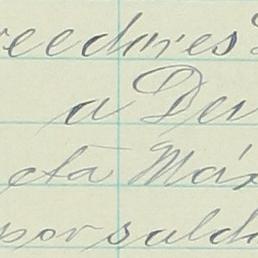 reedores
a De
cta Máx
por sald